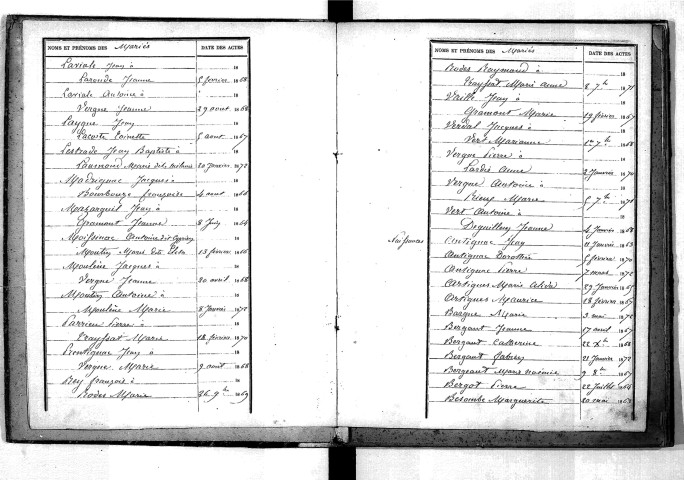 NOMS ET PRÉNOMS DES Mariés DATE DES ACTES
Laviale Jean à 18
Laronde Jeanne 5 février 1868
Laviale Antoine à 18
Vergne Jeanne 29 août 1868
Layque Jean 18
Lacoste Toinette 5 août 1867
Lestrade Jean Baptiste à 18
Laumond Marie 20 Janvier 1872
Madrignac Jacques à 18
Bourbouze françoise 4 août 1866
Mazarguil Jean à 18
Gramont Jeanne 8 Juin 1864
Moissinac Antoine dit 18
Moulin Marie 13 février 1866
Moulène Jacques à 18
Vergne Jeanne 20 avril 1868
Moulin Antoine à 18
Moulène Marie 8 Janvier 1872
Parrieu Pierre à 18
Trayssat Marie 18 février 1870
Pontignac Jean à 18
Vergne Marie 9 août 1868
Rey françois à 18
Rodes Marie 26 9bre 1869
NOMS ET PRÉNOMS DES Mariés DATE DES ACTES
Rodes Raymond à 18
Trayssat Marie Anne 8 7bre 1871
Vaille Jean à 18
Gramont Marie 19 février 1867
Verdal Jacques à 18
Vert Marianne 1er 7bre 1868
Vergne Pierre à 18
Lardes Anne 2 Janvier 1870
Vergne Antoine à 18
Prieux Marie 5 7bre 1871
Vert Antoine à 18
Deguilhem Jeanne 4 Janvier 1868
Naissances
Antignac Jean 11 Janvier 1863
Antignac Dorothée 5 février 1870
Antignac Pierre 7 mars 1872
Artigues Marie 29 Janvier 1865
Artigues Maurice 28 février 1867
Bargue Marie 3 mai 1872
Bergant Jeanne 17 août 1867
Bergant Catherine 22 Xbre 1868
Bergant 21 Janvier 1872
Bergeant Marie noémie 9 8bre 1867
Bergot Pierre 22 Juillet 1866
Besombe Marguerite 20 mai 1863